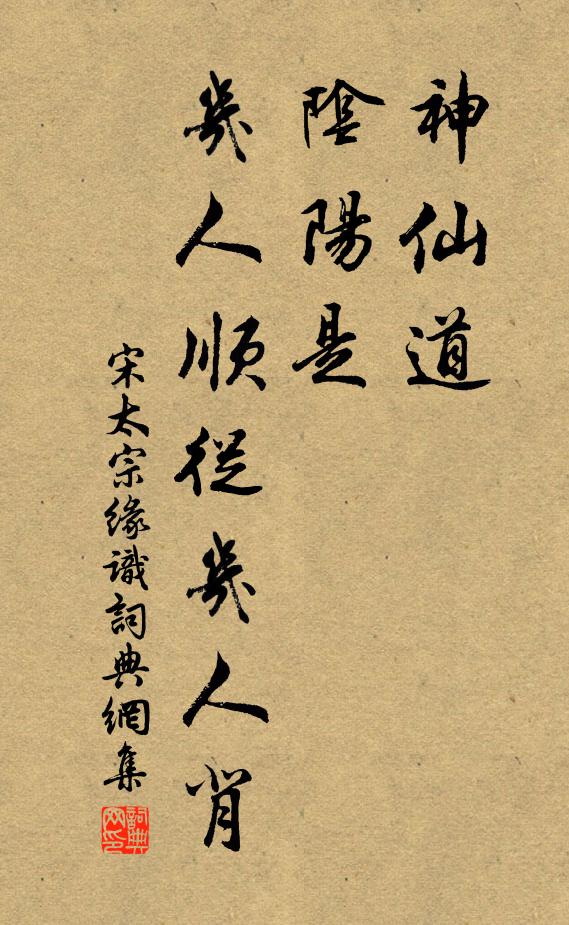 神仙道
陰陽是
幾人順從幾人肖
宋太宗緣識詞典網集
詞典网印